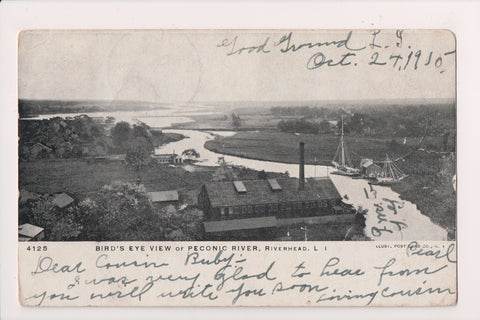 Good Ground L. I.
Oct. 24, 1905
4125 BIRD'S EYE VIEW OF PECONIC RIVER, RIVERHEAD, L I
ILLUS. POST CARD CO., N. Y.
Dear Cousin Ruby:-
I was very glad to hear from
you will write you soon loving cousin
Pearl